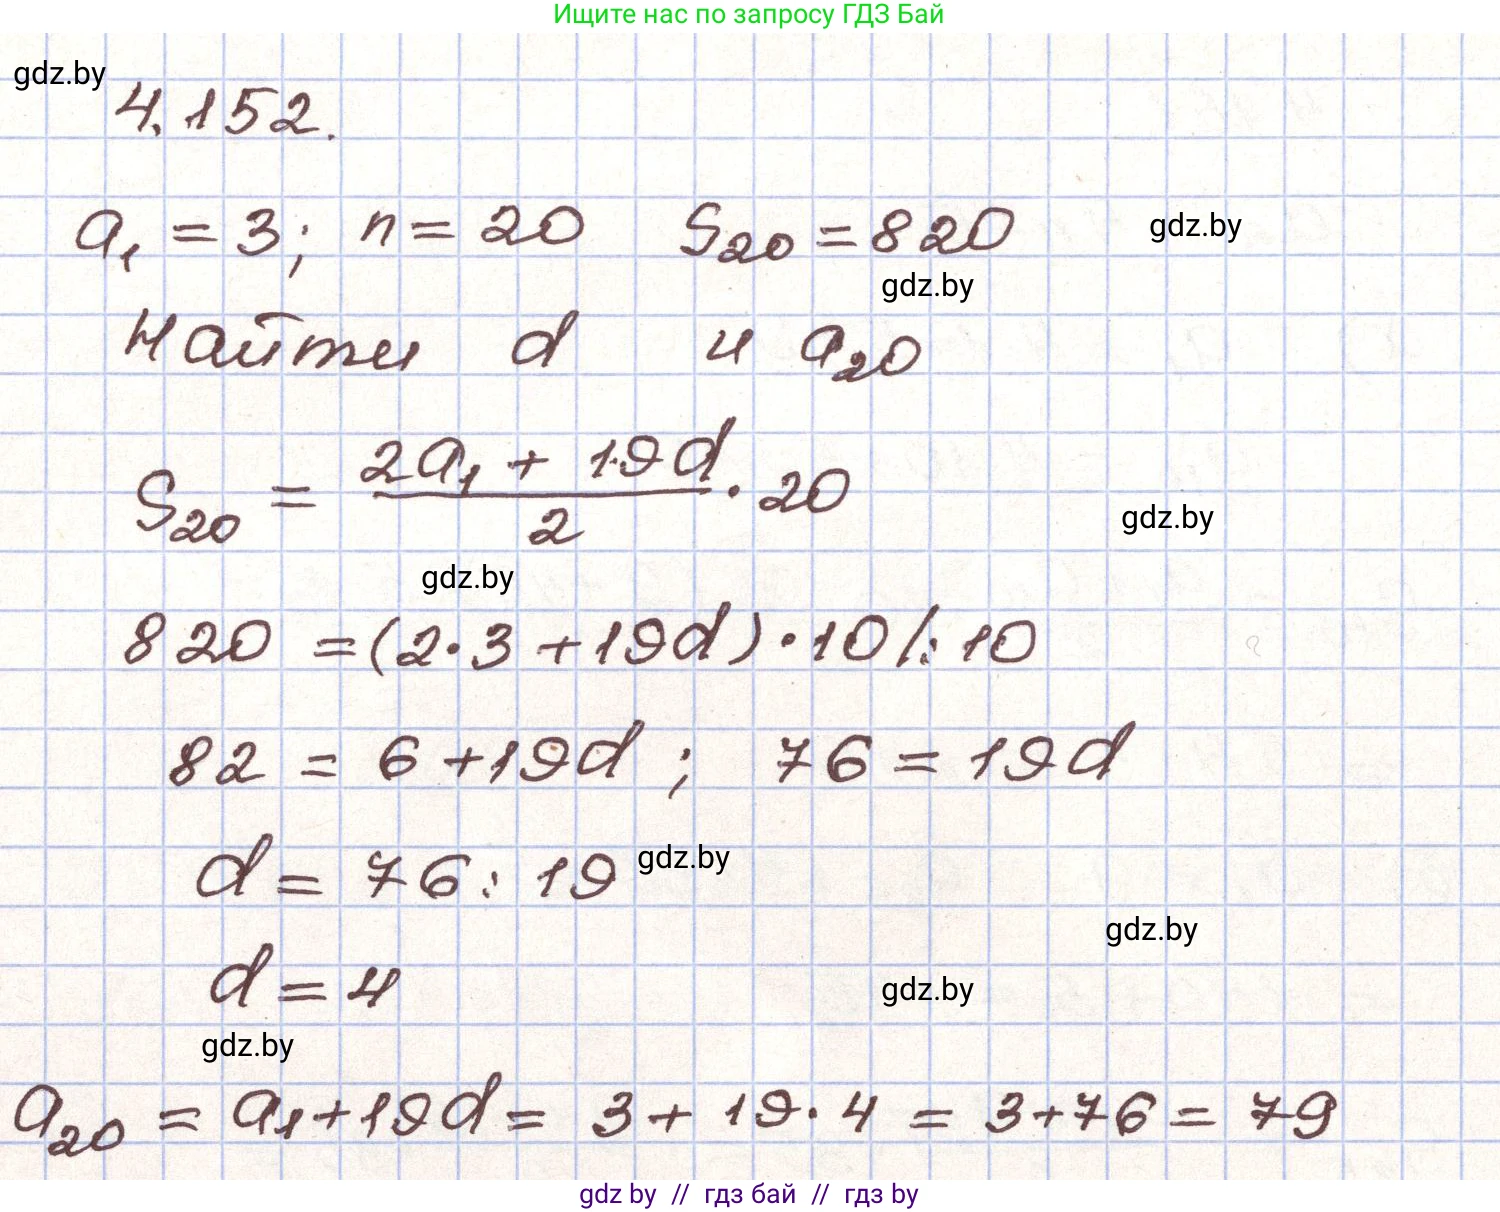 Ищите нас по запросу ГДЗ Бай
gdz.by
4.152.
a₁ = 3; n = 20 S₂₀ = 820
gdz.by
gdz.by
Найти d и a₂₀
S₂₀ = (2a₁ + 19d)/2 · 20
gdz.by
gdz.by
820 = (2·3 + 19d)·10 /:10
82 = 6 + 19d ; 76 = 19d
d = 76 : 19
gdz.by
gdz.by
d = 4
gdz.by
gdz.by
a₂₀ = a₁ + 19d = 3 + 19·4 = 3 + 76 = 79
gdz by // гдз бай // гдз by